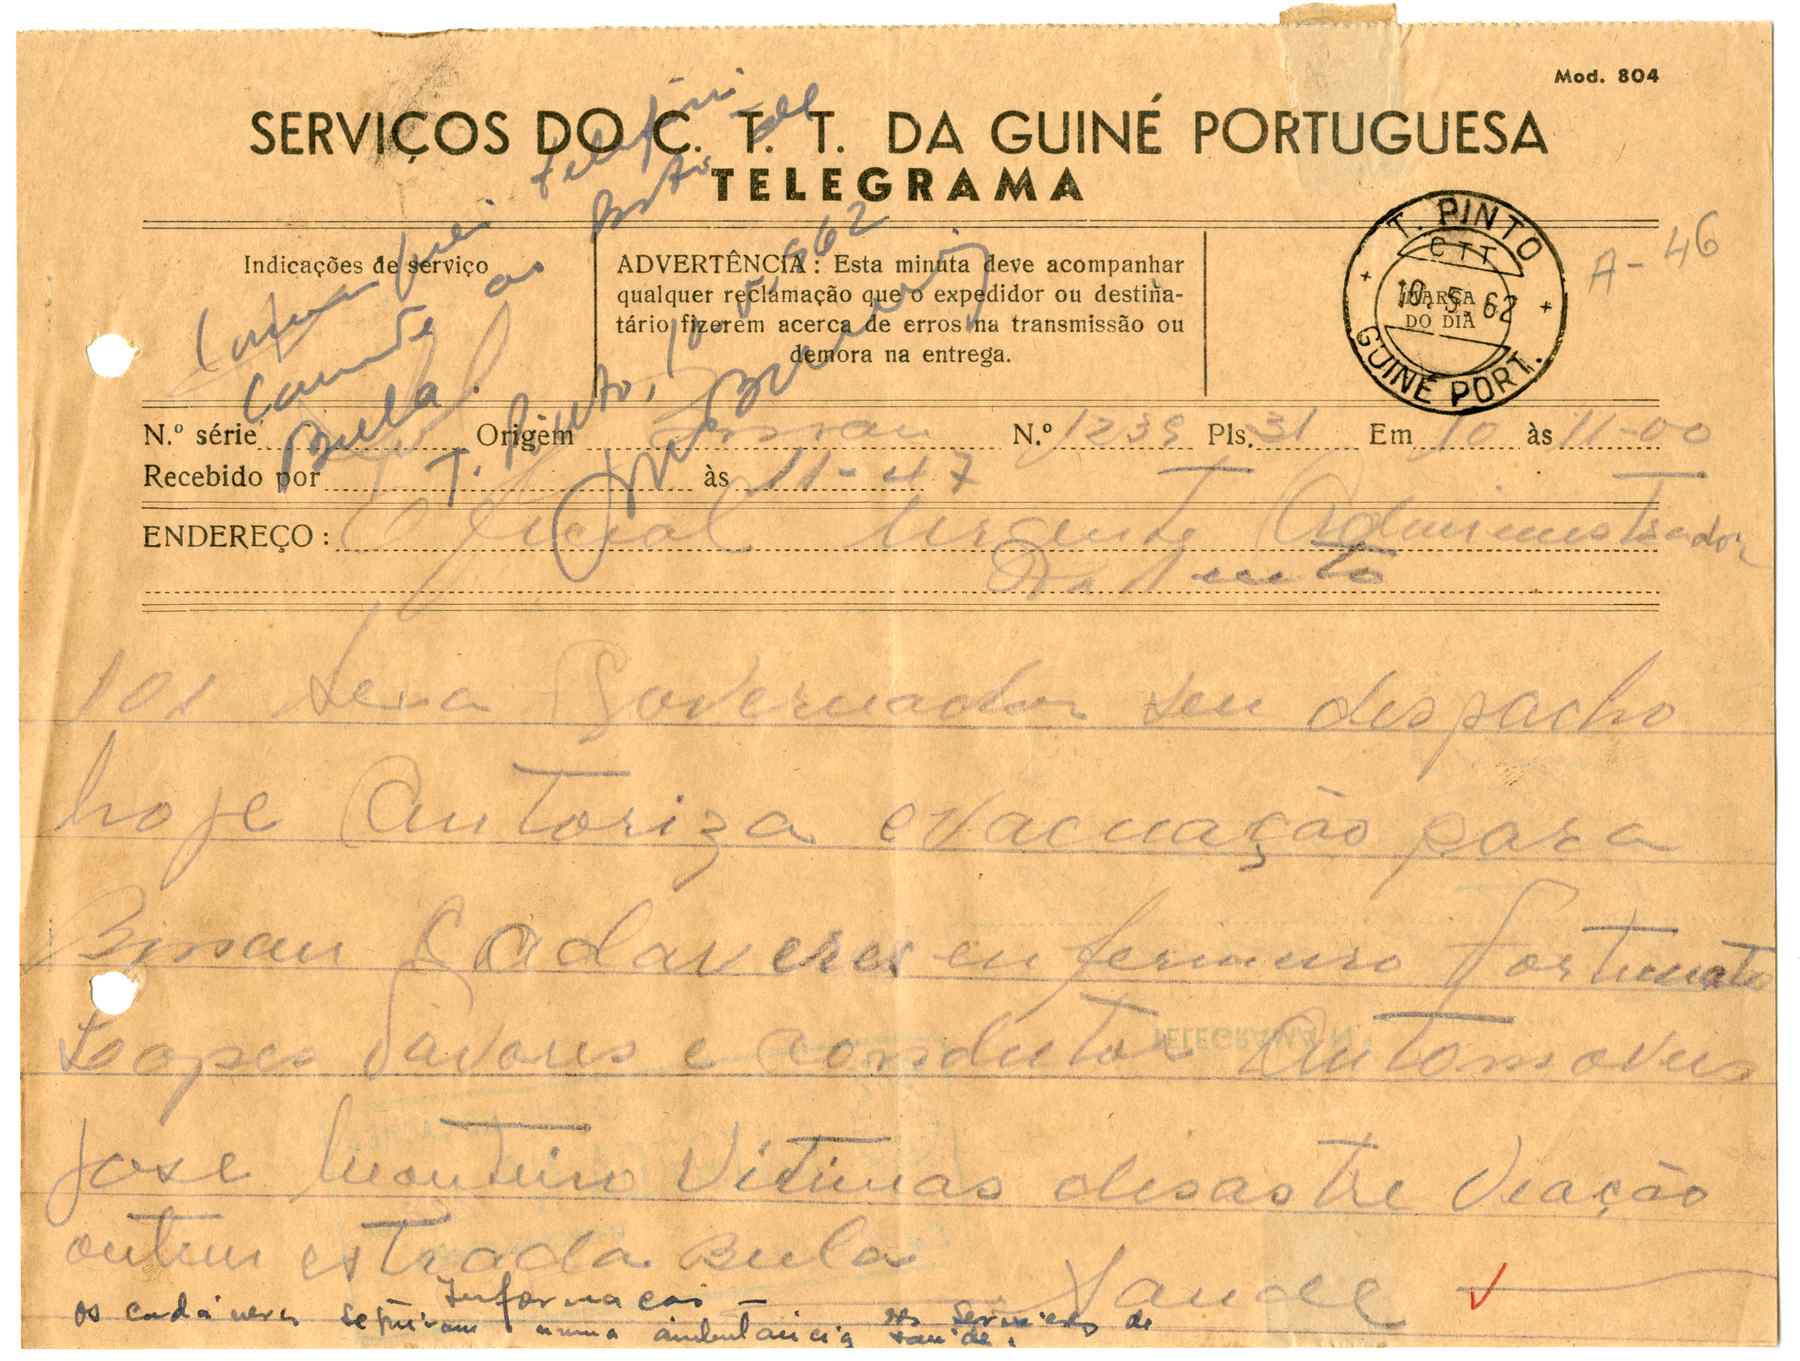 Mod. 804
SERVIÇOS DO C. T. T. DA GUINÉ PORTUGUESA
TELEGRAMA
Indicações de serviço
ADVERTÊNCIA: Esta minuta deve acompanhar
qualquer reclamação que o expedidor ou destina-
tário fizerem acerca de erros na transmissão ou
demora na entrega.
T. PINTO
CTT
10.5.62
MARCA
DO DIA
GUINÉ PORT.
A-46
telefoni
camente ao Posto de
Bula.
T. Pinto, 10-5-962
N.º série Origem Bissau N.º 1239 Pls. 31 Em 10 às 11-00
Recebido por às 11-47
ENDEREÇO: Oficial Urgente Administrador
Pinto
101 sexa Governador seu despacho
hoje Autoriza evacuação para
Bissau Cadaveres enfermeiro Fortunato
Lopes Tavares e condutor Automoveis
Jose Monteiro Vitimas desastre Viação
ontem estrada Bula Saude
Informação
os cadáveres seguiram numa ambulância dos Serviços de
saúde.